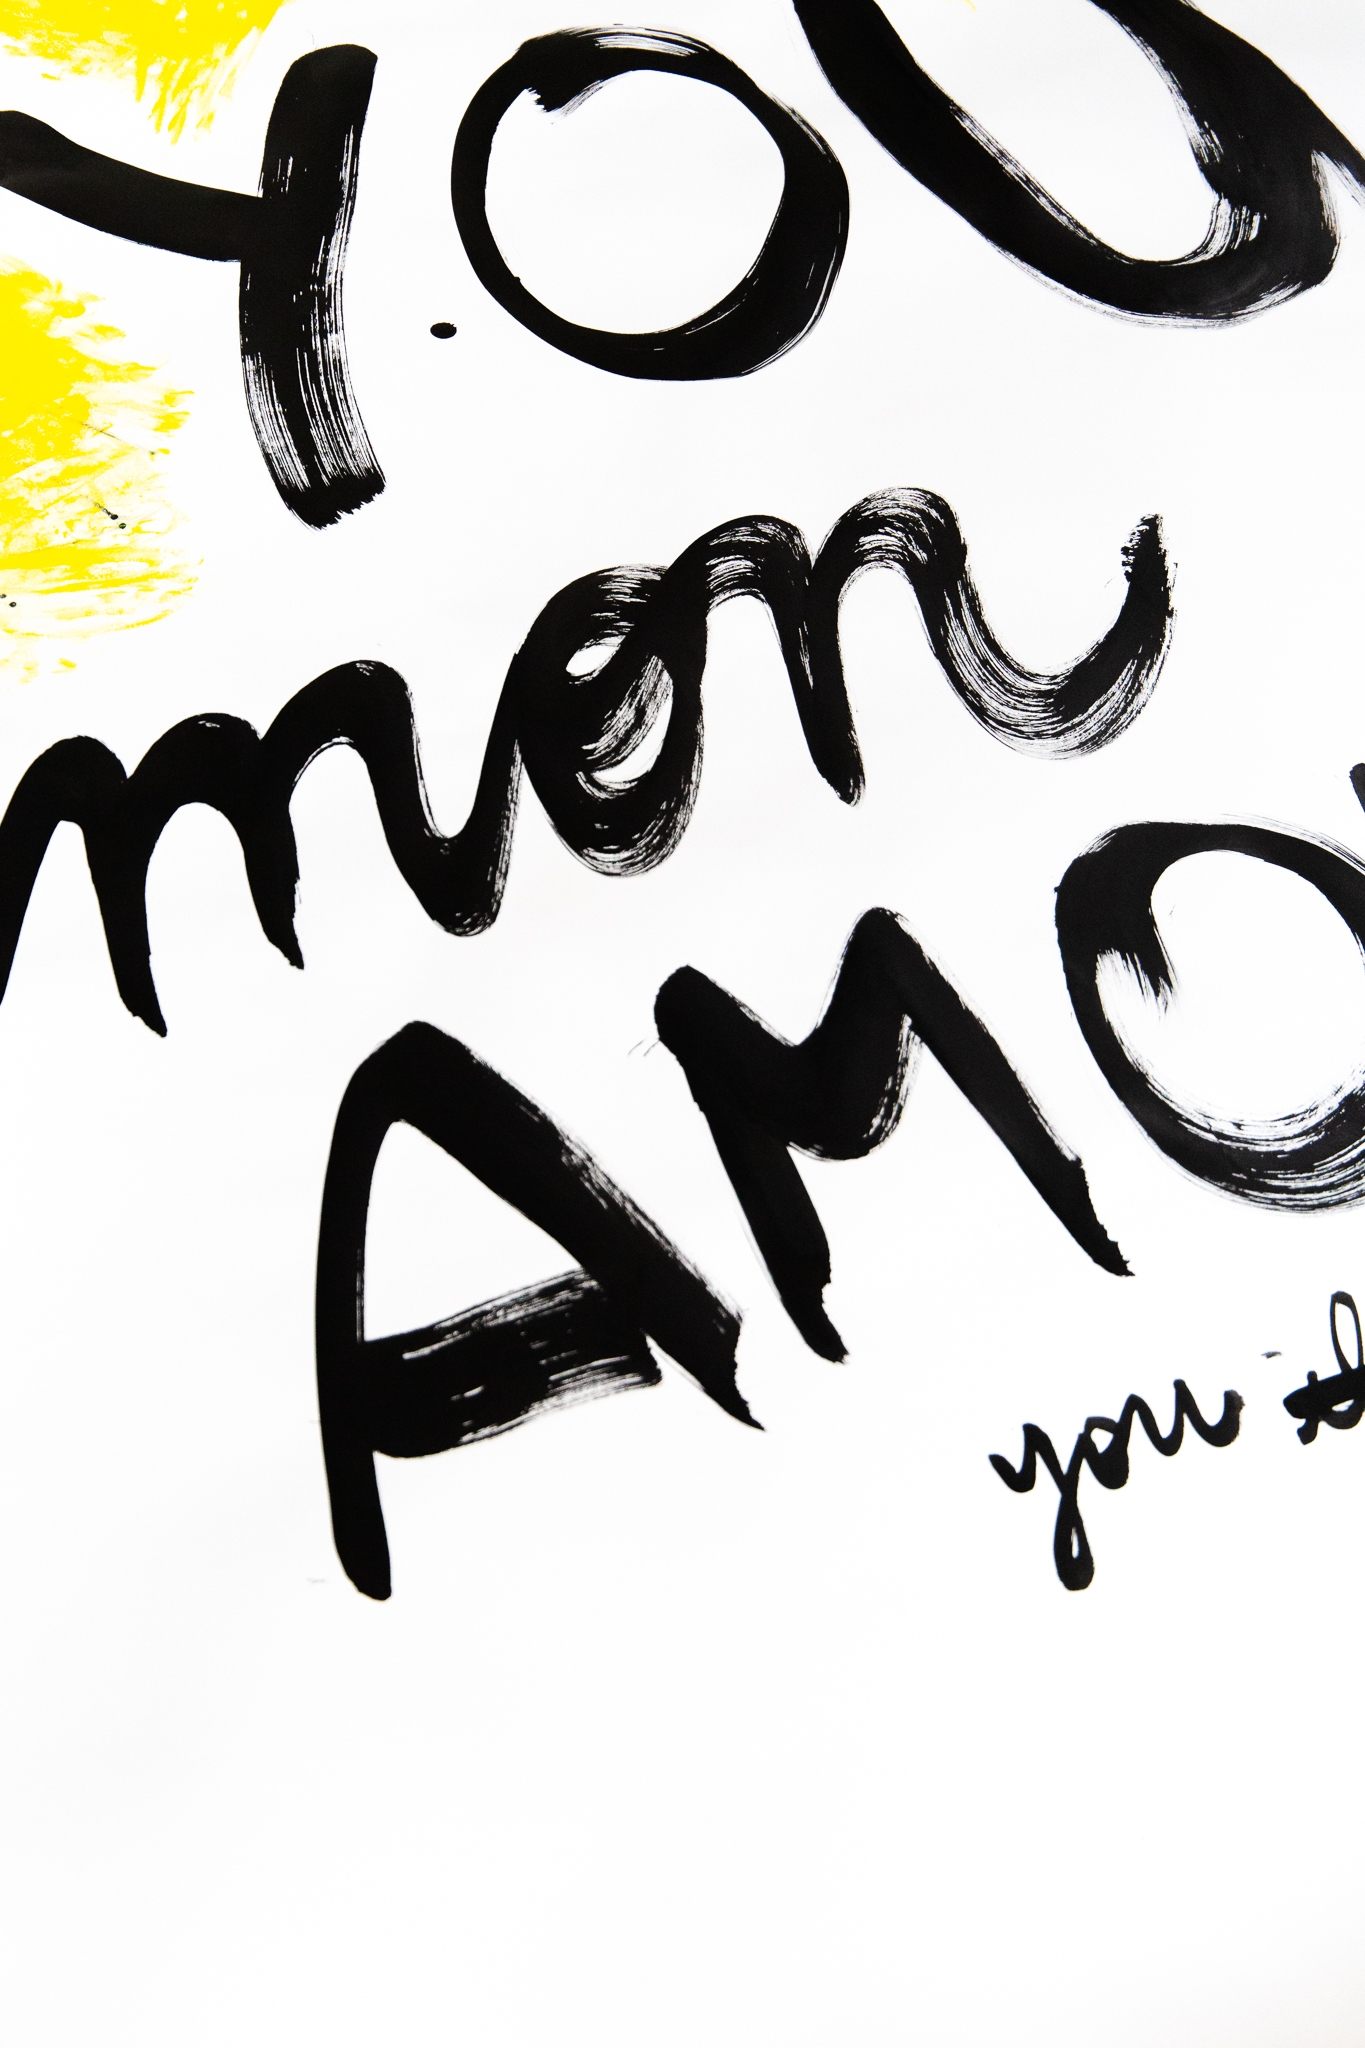 YOU
mon
AMO
you